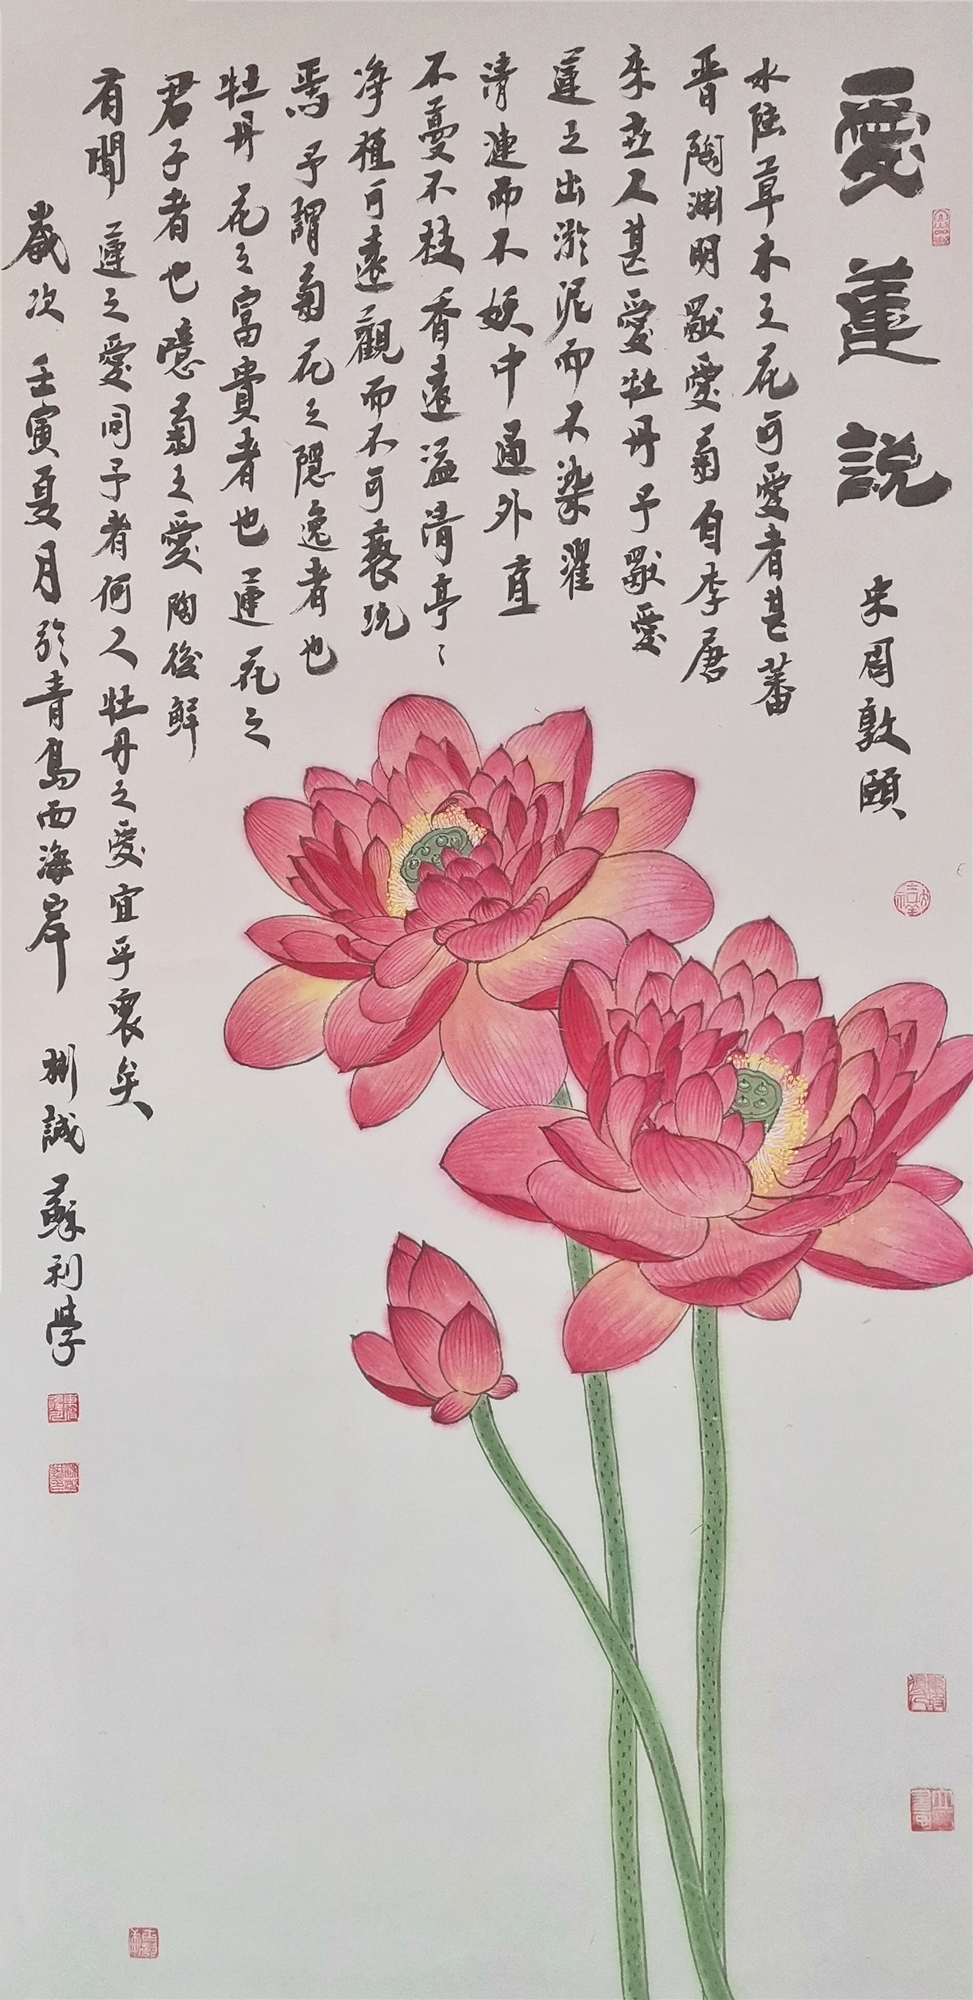 愛蓮說 宋周敦頤
水陸草木之花可愛者甚蕃
晋陶渊明獨愛菊自李唐
来世人甚愛牡丹予獨愛
蓮之出淤泥而不染濯
清漣而不妖中通外直
不蔓不枝香遠溢清亭〻
净植可遠觀而不可褻玩
焉予謂菊花之隱逸者也
牡丹花之富貴者也蓮花之
君子者也噫菊之愛陶後鮮
有聞蓮之愛同予者何人牡丹之愛宜乎衆矣
歲次壬寅夏月於青島西海岸 誠 蘇利學